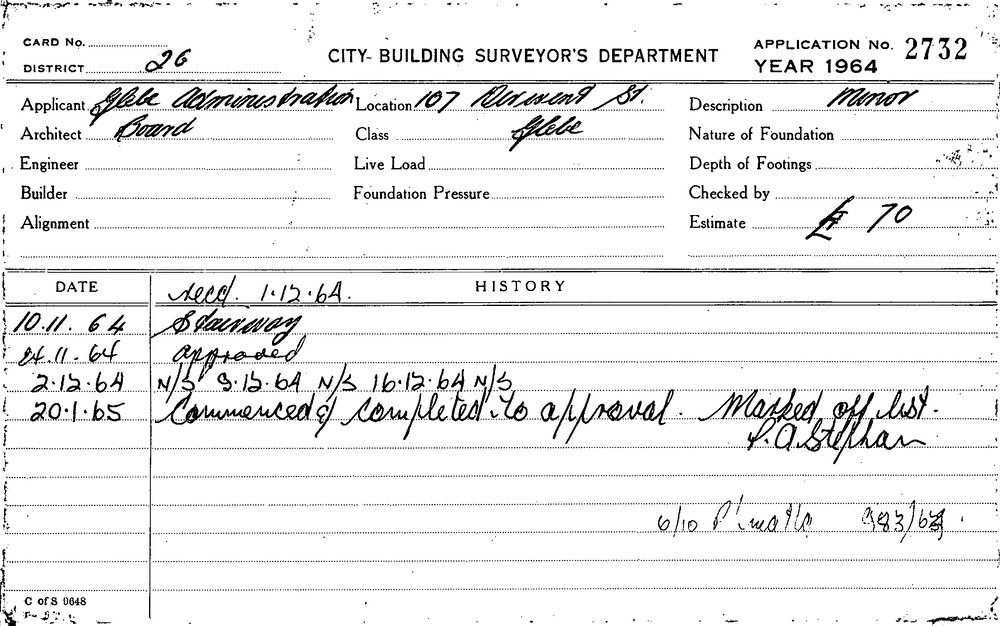 CARD No.
DISTRICT 26
CITY BUILDING SURVEYOR'S DEPARTMENT
APPLICATION No. 2732
YEAR 1964
Applicant Glebe Administration Location 107 St. Description Minor
Architect Board Class Glebe Nature of Foundation
Engineer Live Load Depth of Footings
Builder Foundation Pressure Checked by
Alignment Estimate £ 70
DATE HISTORY
recd. 1.12.64.
10.11.64 Stairway
24.11.64 approved
2.12.64 N/S 9.12.64 N/S 16.12.64 N/S
20.1.65 Commenced & completed to approval. Marked off list.
P.A. Stephan
6/10
C of S 9648